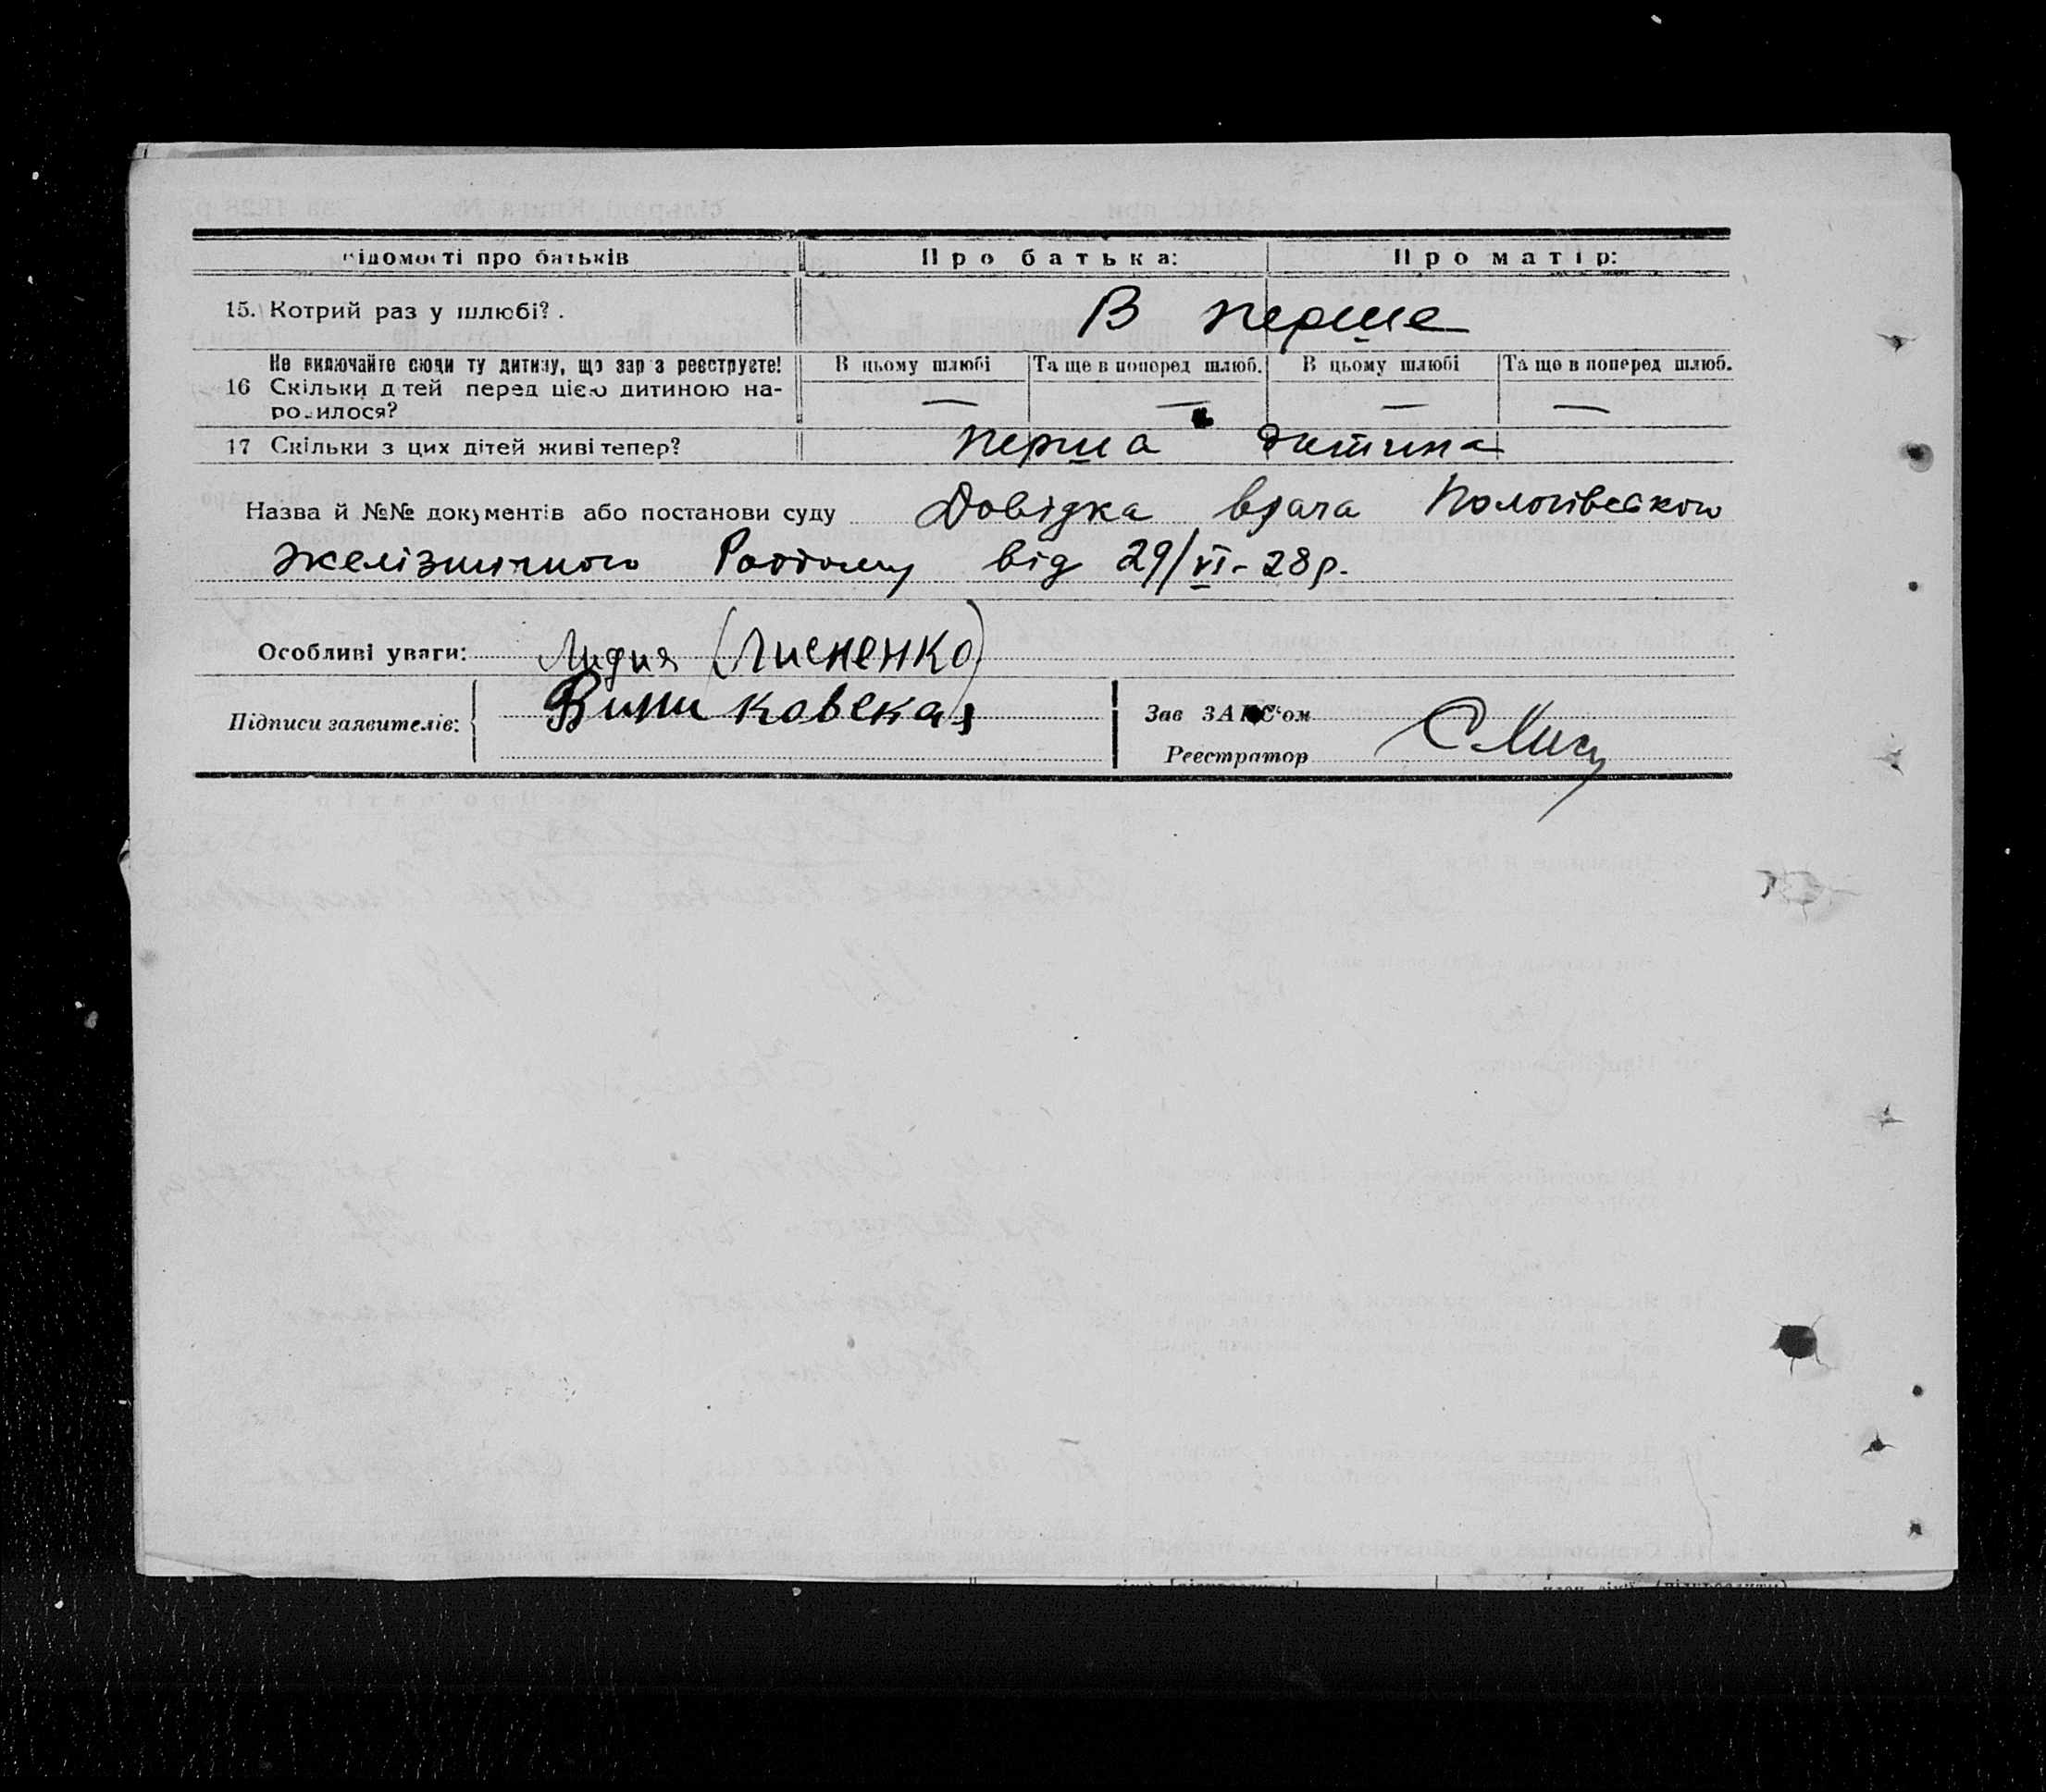 відомості про батьків Про батька: Про матір:
15. Котрий раз у шлюбі? . В перше
Не включайте сюди ту дитину, що зараз реєструєте! В цьому шлюбі Та ще в поперед шлюб. В цьому шлюбі Та ще в поперед шлюб.
16 Скільки дітей перед цією дитиною на- — — — —
родилося?
17 Скільки з цих дітей живі тепер? перша дитина
Назва й №№ документів або постанови суду Довідка врача Пологівского
желізничного Роддому від 29/VI-28р.
Особливі уваги: Лидия (Лисненко)
Підписи заявителів: Винниковская Зав ЗАГС'ом
Реєстратор